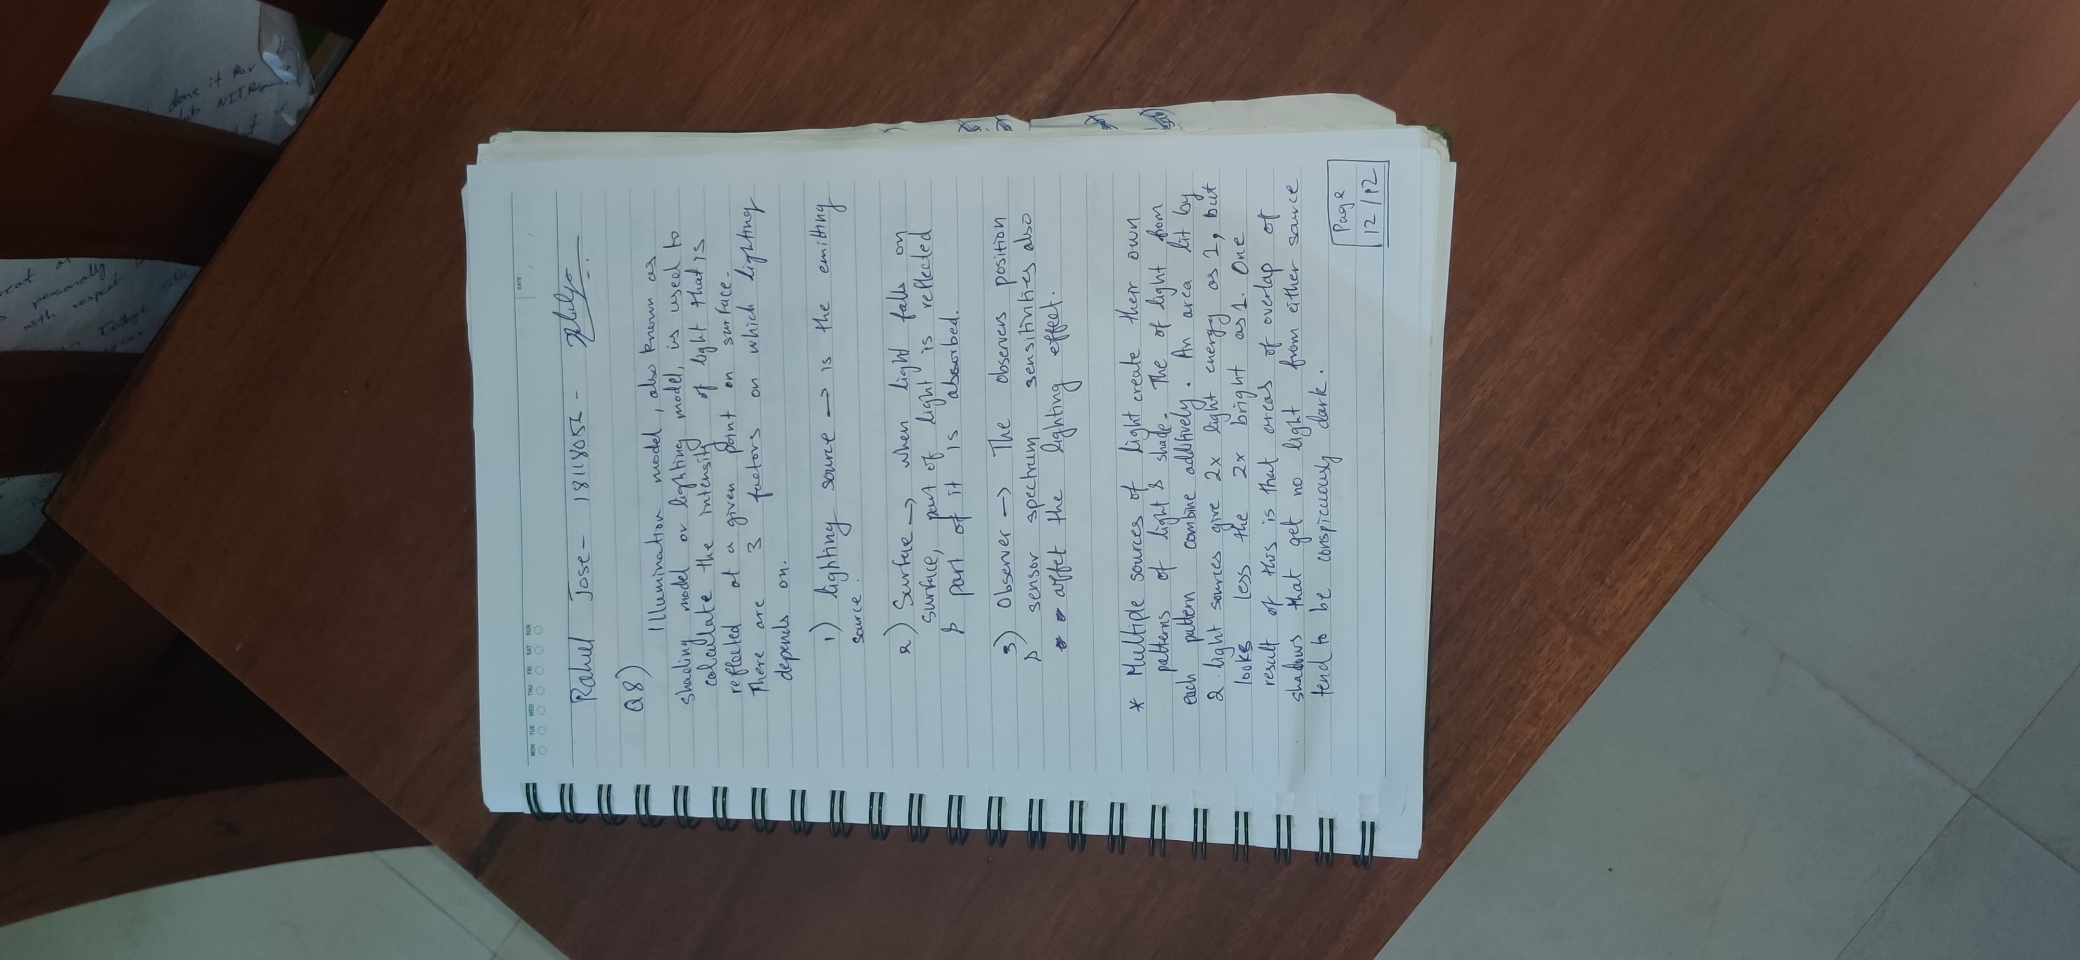 MON TUE WED THU FRI SAT SUN
DATE
Rahul Jose - 18118056 -
Q8)
Illumination model, also known as
shading model or lighting model, is used to
calculate the intensity of light that is
reflected at a given point on surface.
There are 3 factors on which lighting
depends on.
1) lighting source → is the emitting
source.
2) Surface → when light falls on
surface, part of light is reflected
& part of it is absorbed.
3) Observer → The observers position
& sensor spectrum sensitinties also
affet the lighting effect.
* Multiple sources of light create their own
patterns of light & shade. The of light from
each pattern combine additively. An area lit by
2 light sources give 2x light energy as 1, but
looks less the 2x bright as 1. One
result of this is that areas of overlap of
shadows that get no light from either source
tend to be conspicuously dark.
Page
12/12